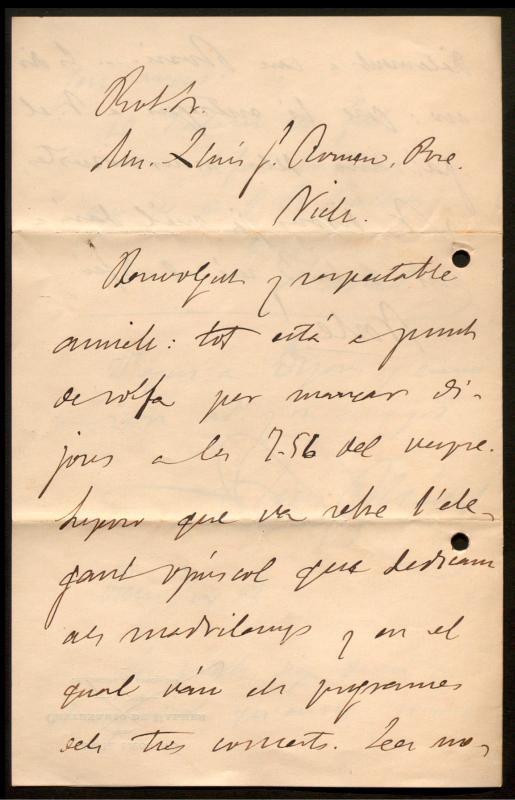 Rvt. Sr.
Mn. Lluís G. Romeu, Pvre.
Vich.
Benvolgut y respectable
amich: tot está a punt
de solfa per marxar di-
jous a les 7.56 del vespre.
Suposo que va rebre l'ele-
gant opúscol que dedicam
als madrilenys y en el
qual ván els programes
dels tres concerts. Les no-